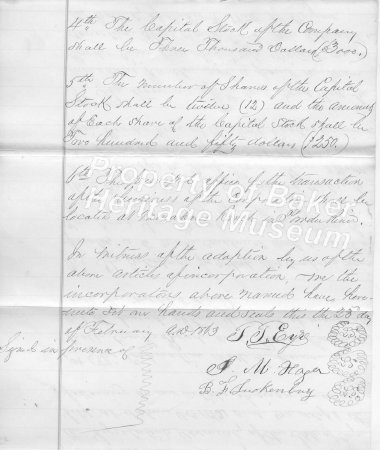 4th The Capital Stock of the Company
shall be Three Thousand Dollars (3000.)
5th The number of Shares of the Capital
Stock shall be twelve (12) and the amount
of Each share of the Capital Stock shall be
Two hundred and fifty dollars ($250)
6th The office for the transaction
of the business of the
located at
In witness of the adoption by us of the
above articles of incorporation we the
incorporators above named have here-
unto set our hands and seals this the day
of February A.D. 1863
Signed in presence of
S M Hager
Property of Baker
Heritage Museum